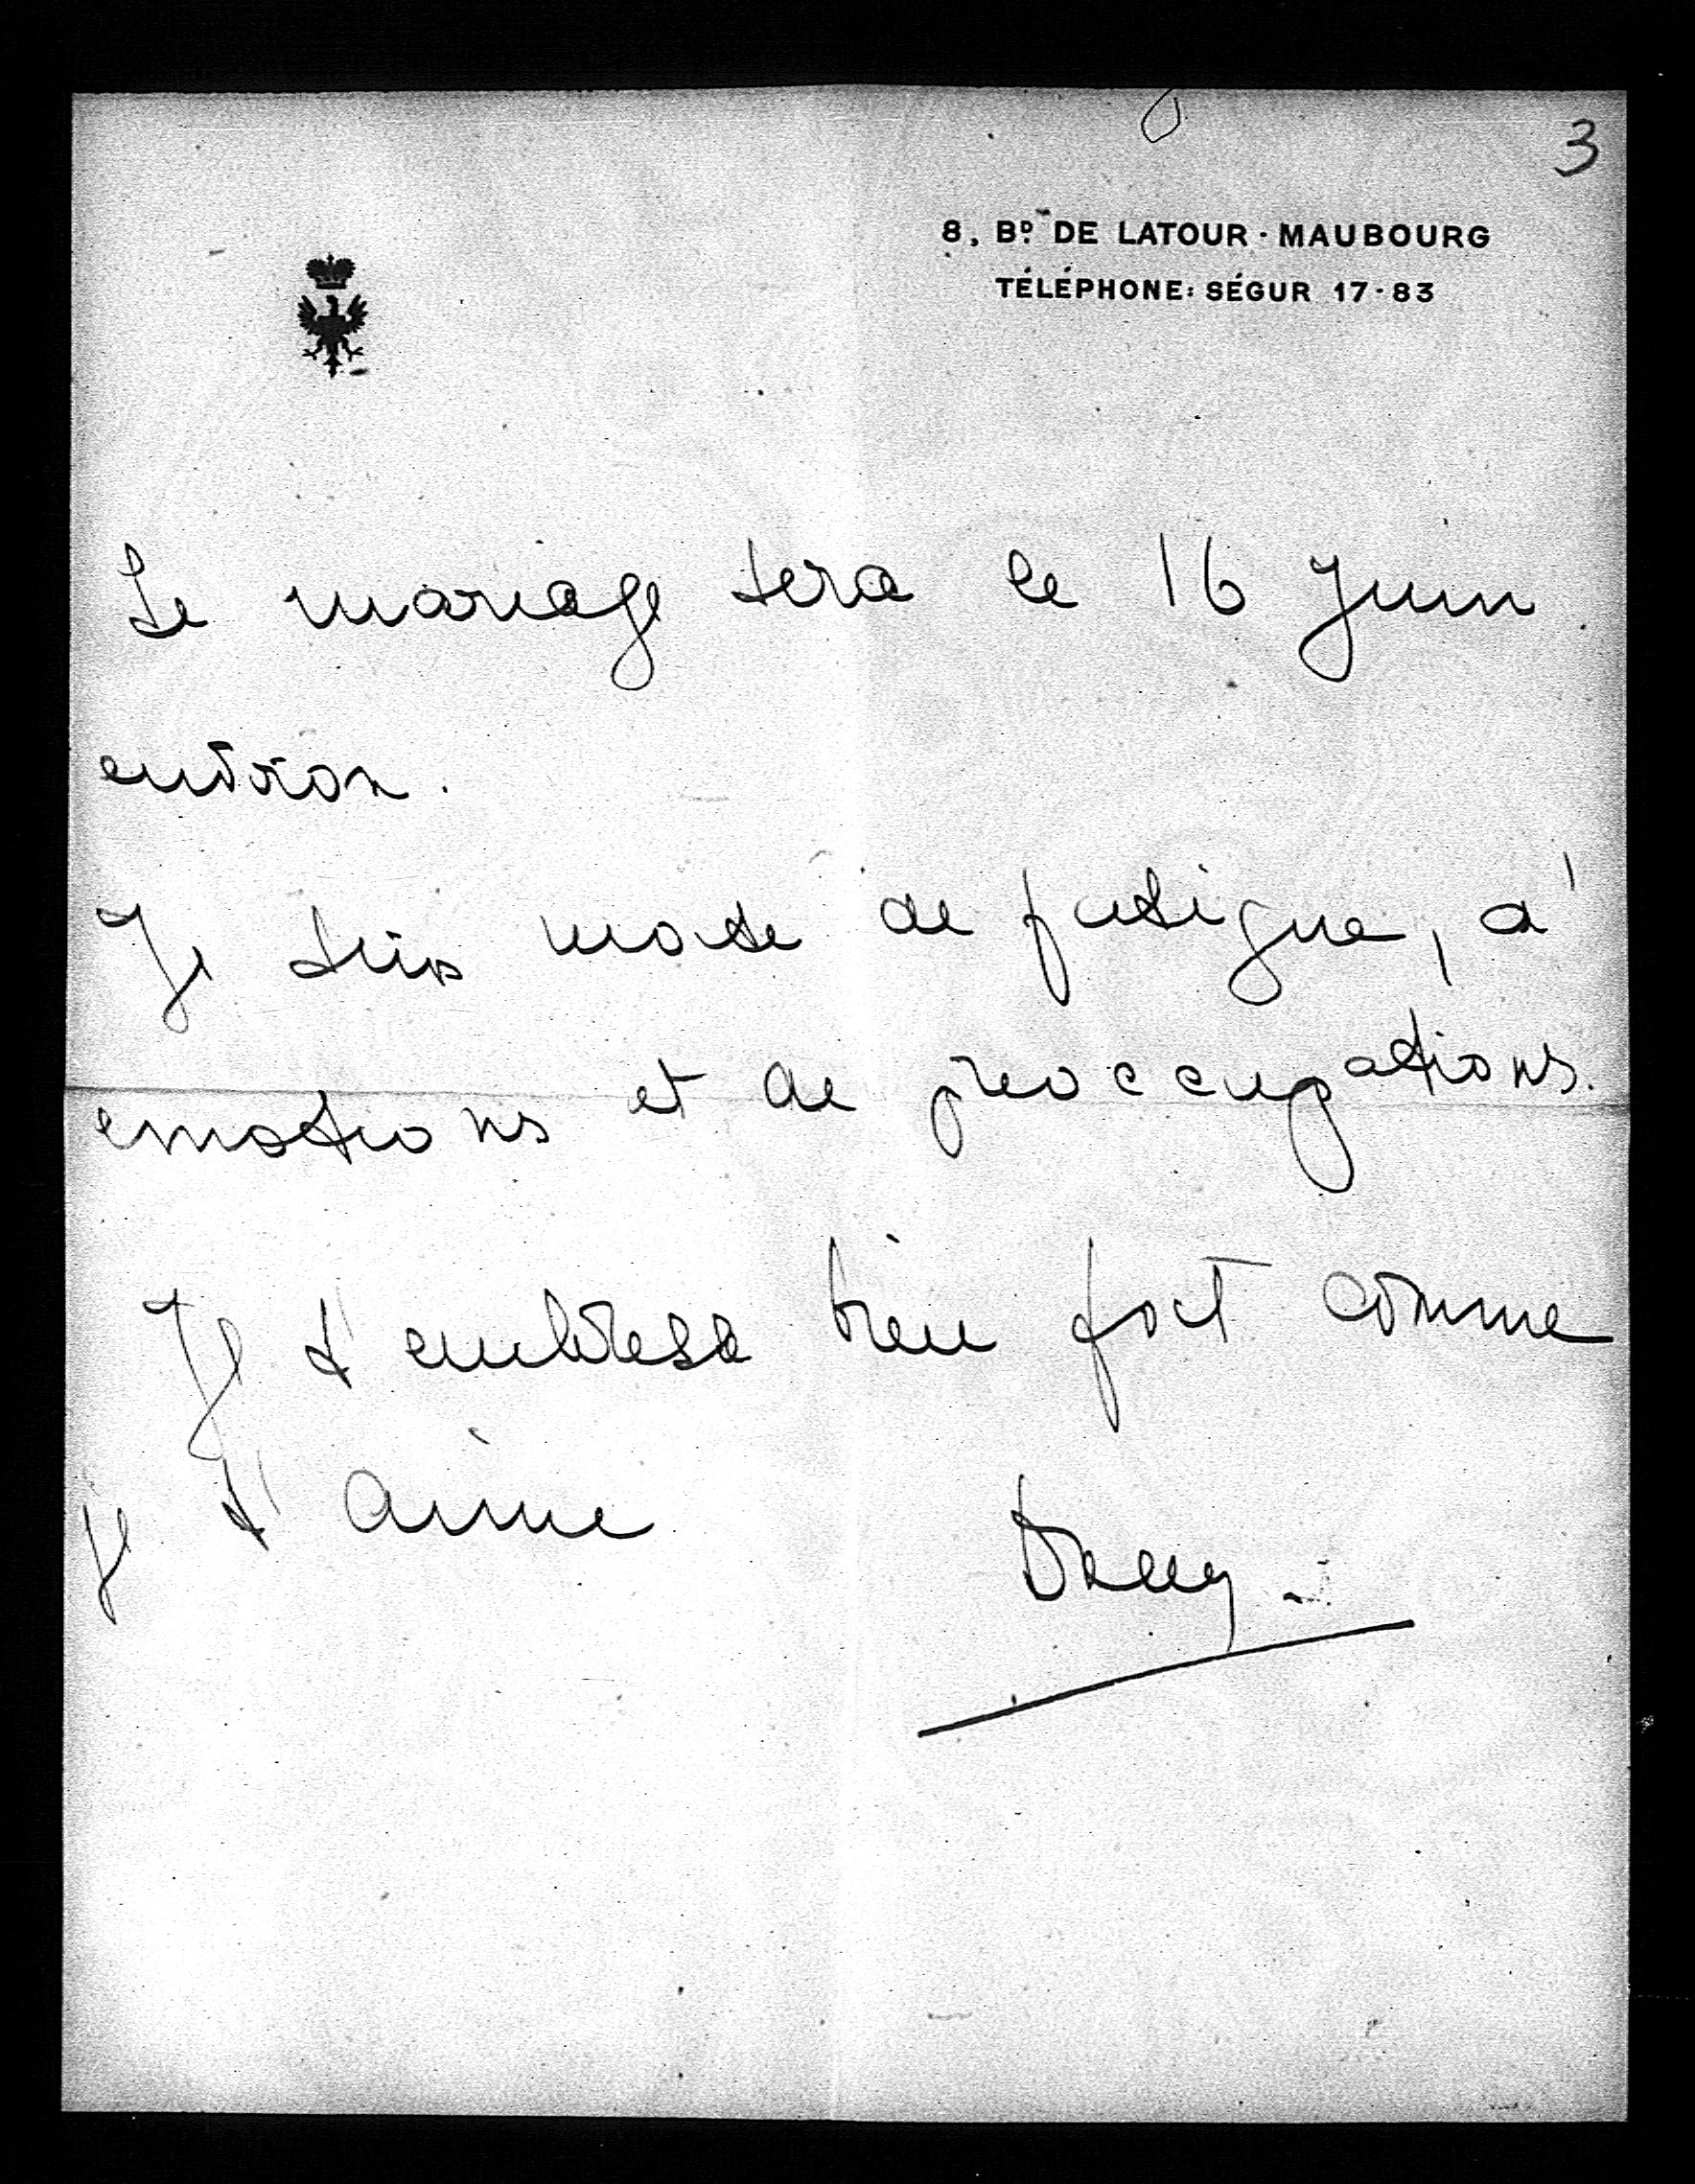 3
8, Bᴅ. DE LATOUR-MAUBOURG
TÉLÉPHONE: SÉGUR 17-83
Le mariage sera le 16 Juin
environ.
Je suis morte de fatigue, d'
emotions et de preoccupations.
Je t'embrasse bien fort comme
je t'aime